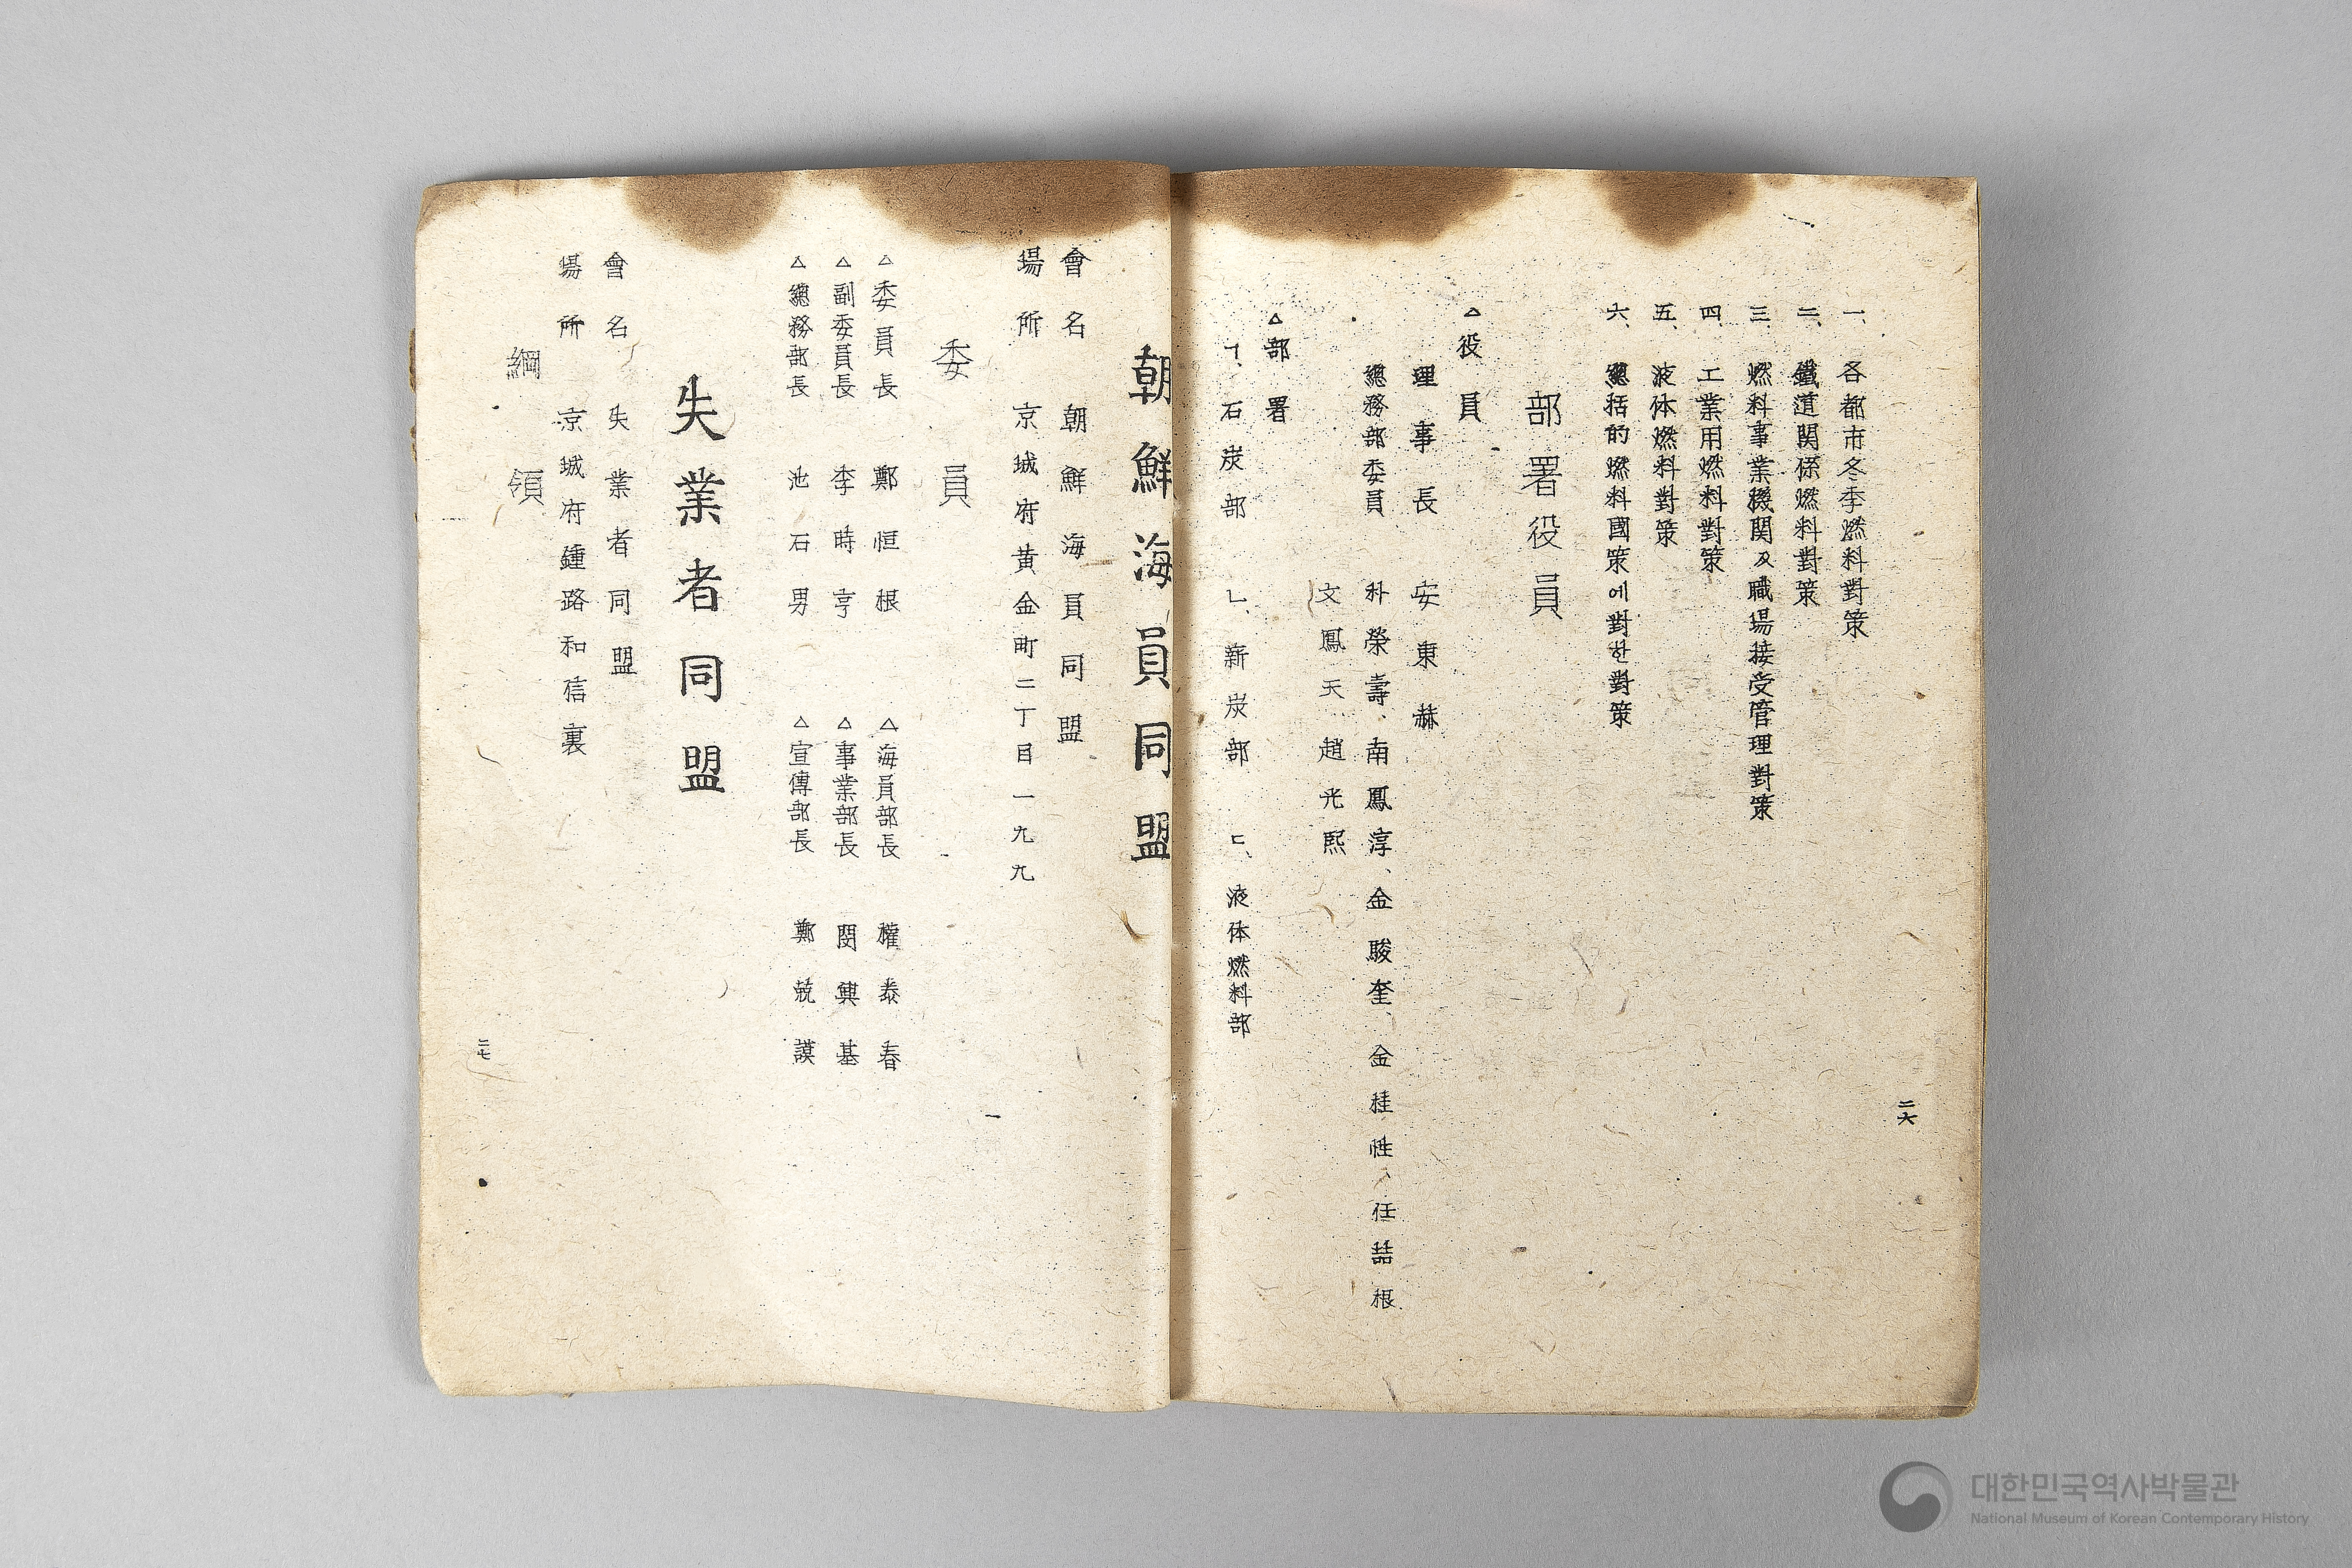 一、各都市冬季燃料對策
二、鐵道関係燃料對策
三、燃料事業機関及職場接受管理對策
四、工業用燃料對策
五、液体燃料對策
六、總括的燃料國策에對한對策
部署役員
△役員
理事長 安東赫
總務部委員 朴榮壽、南鳳淳、金駿奎、金桂性、任喆根
文鳳天 趙光熙
△部署
ㄱ、石炭部 ㄴ、新炭部 ㄷ、液体燃料部
二六
朝鮮海員同盟
會名 朝鮮海員同盟
場所 京城府黃金町二丁目一九九
委員
△委員長 鄭恒根 △海員部長 權泰春
△副委員長 李時亨 △事業部長 閔興基
△總務部長 池石男 △宣傳部長 鄭兢謨
失業者同盟
會名 失業者同盟
場所 京城府鍾路和信裏
綱領
二七
대한민국역사박물관
National Museum of Korean Contemporary History